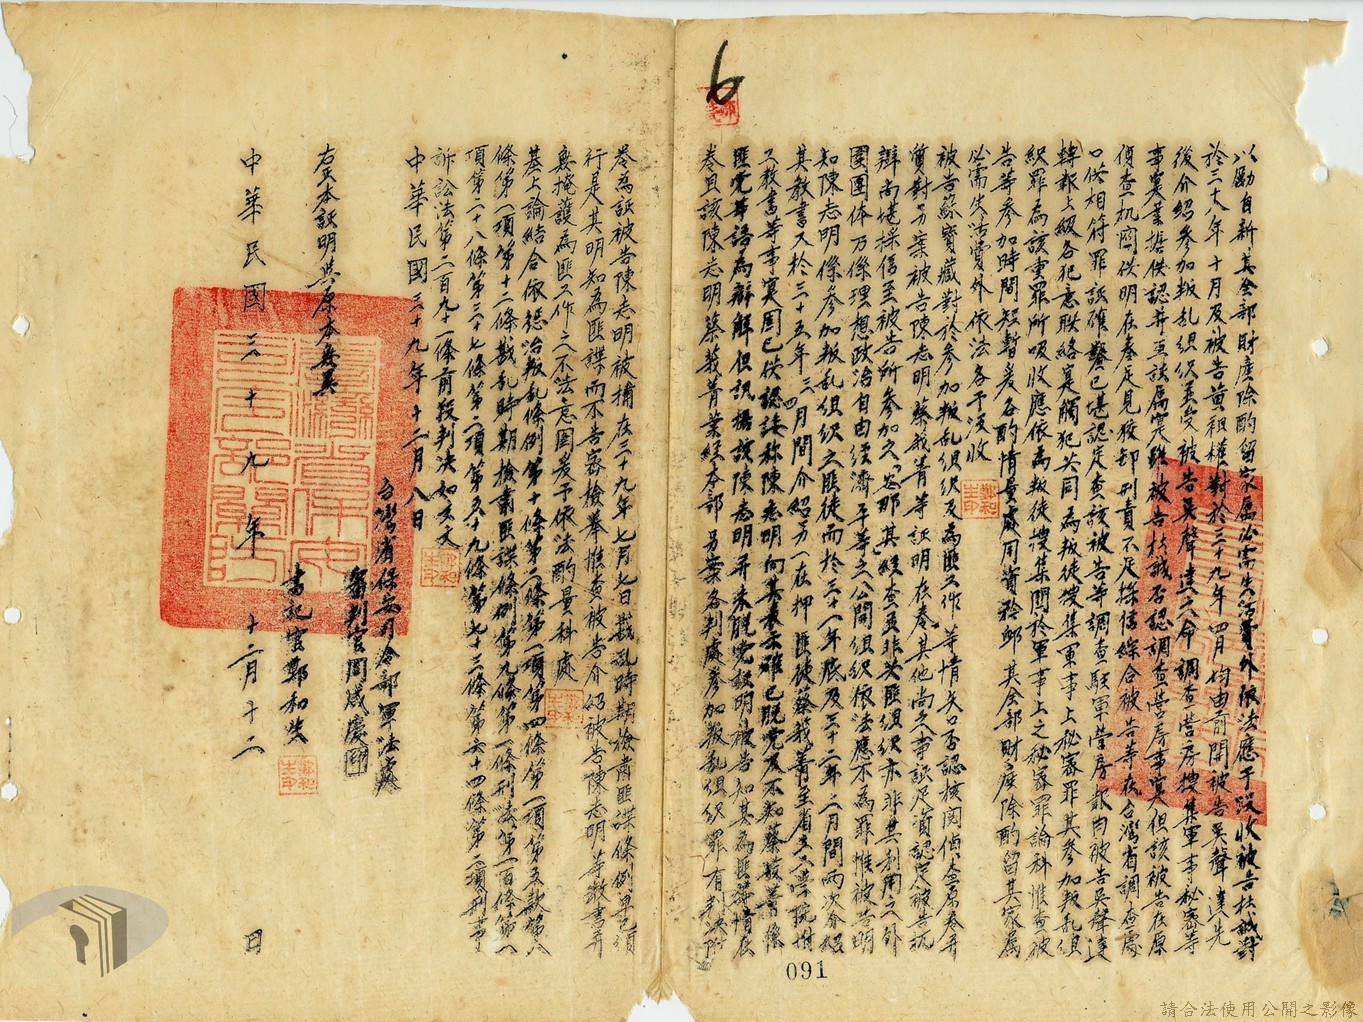 6
以勵自新其全部財產除酌留家屬必需生活費外依法應予沒收被告杜誠對
於三十八年十月及被告黃祖權對於三十九年四月均由前開被告吳聲達先
後介紹參加叛乱組织并受被告吳聲達之命調查营房搜集軍事秘密等
事實業據供認并互証属實雖被告杜誠否認調查营房事實但該被告在原
偵查机関供明在卷足見狡卸刑責不足採信綜合被告等在台灣省調查處
口供相符罪証確鑿已堪認定查該被告等調查駐軍营房報由被告吳聲達
轉報上級各犯意联絡实觸犯共同為叛徒搜集軍事上秘密罪其參加叛乱组
织罪為該重罪所吸收應依為叛徒搜集関於軍事上之秘密罪論科惟查被
告等参加時間短暫爰各酌情量處用資矜卹其全部財產除酌留其家屬
必需生活費外依法各予沒收
被告蘇寶藏對於參加叛乱組织及為匪工作等情矢口否認核閱偵查原卷并
質對另案被告陳志明蔡莪菁等証明在卷其他尚乏事証足資認定被告抗
辯尚堪採信至被告所參加之「安那其」經查並非共匪組织亦非其利用之外
圍團体乃係理想政治自由经濟平等之公開组织依法應不為罪惟被告明
知陳志明係參加叛乱組织之匪徒而於三十一年底及三十二年二月間兩次介紹
其教書又於三十五年三四月間介紹另一在押匪徒蔡莪菁至省立文學院附
工教書等事實固已供認諉称陳志明向其表示雖已脱党及不知蔡莪菁係
匪党等語為辯解但訊據該陳志明并未脱党証明被告知其為匪等情在
卷且該陳志明蔡莪菁業经本部另案各判處參加叛乱组织罪有判决附
卷為証被告陳志明被捕在三十九年七月七日戡乱時期檢肅匪諜條例早已頒
行是其明知為匪諜而不告密檢舉推查被告介紹被告陳志明等教書并
無掩護為匪工作之不法意圖爰予依法酌量科處
基上論結合依懲治叛乱條例第十條第二條第一項第四條第一項第五款第八
條第一項第十二條戡乱時期檢肅匪諜條例第九條第一條刑法第一百條第一
項第二十八條第三十七條第二項第五十九條第七十三條第六十四條第二項刑事
訴訟法第二百九十一條前段判决如主文
中華民國三十九年十二月八日
台灣省保安司令部軍法處
審判官周咸慶
右正本証明與原本無異
書記官鄭和生
中華民國三十九年十二月十二日
091
請合法使用公開之影像